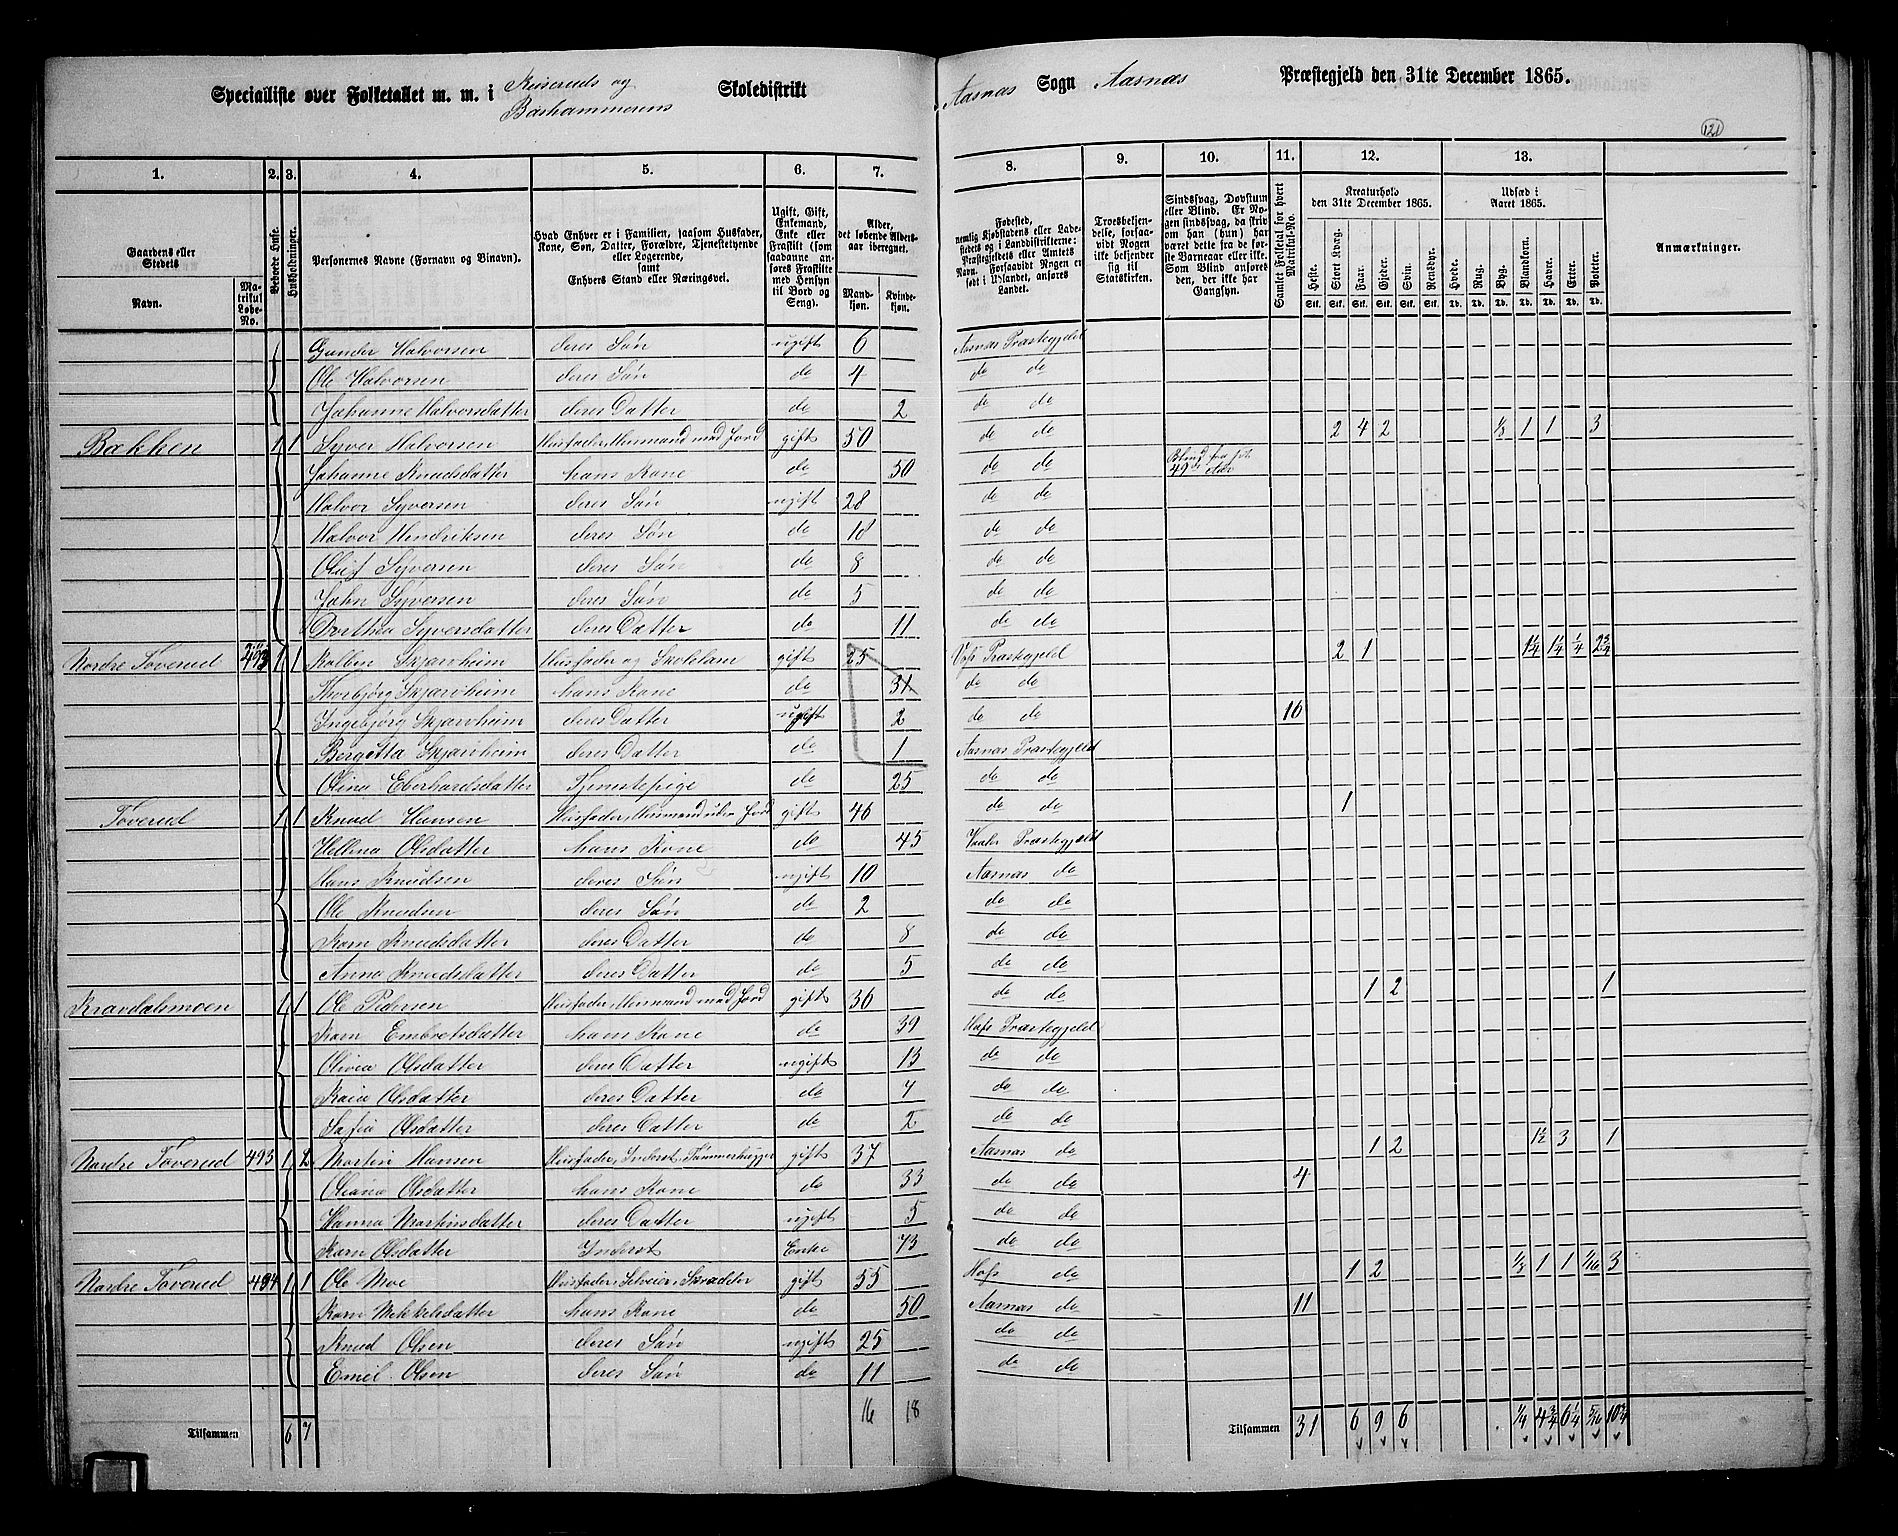 Specialliste over Folketallet m. m. i Kiseruds og Bashammerens Skoledistrikt Aasnæs Sogn Aasnæs Præstegjeld den 31te December 1865.
121
1. 2. 3. 4. 5. 6. 7. 8. 9. 10. 11. 12. 13.
Gaardens eller Stedets Navn. Matrikul Løbe-No.
Beboede Huse.
Husholdninger.
Personernes Navne (Fornavn og Binavn).
Hvad Enhver er i Familien, saasom Husfader, Kone, Søn, Datter, Forældre, Tjenestetyende eller Logerende, samt Enhvers Stand eller Næringsvei.
Ugift, Gift, Enkemand, Enke eller Fraskilt (som saadanne anføres Fraskilte med Hensyn til Bord og Seng).
Alder, det løbende Aldersaar iberegnet. Mandkjøn. Kvindekjøn.
Fødested, nemlig Kjøbstadens eller Ladestedets og i Landdistrikterne: Præstegjeldets eller Amtets Navn. Forsaavidt Nogen er født i Udlandet, anføres Landet.
Troesbekjendelse, forsaavidt Nogen ikke bekjender sig til Statskirken.
Sindssvag, Døvstum eller Blind. Er Nogen sindssvag, da skriv om han (hun) har været dette fra de første Barneaar eller ikke. Som Blind anføres den, der ikke har Gangsyn.
Samlet Folketal for hvert Matrikul-No.
Kreaturhold den 31te December 1865.
Heste. Stort Kvæg. Faar. Gjeder. Svin. Rensdyr.
Udsæd i Aaret 1865.
Hvede. Rug. Byg. Blandkorn. Havre. Erter. Poteter.
Anmærkninger.
Gunder Halvorsen deres Søn ugift 6 Aasnæs Præstegjeld
Ole Halvorsen deres Søn do 4 do do
Johanne Halvorsdatter deres Datter do 2 do do
Bækken 1 1 Syver Halvorsen Husfader, Huusmand med Jord gift 50 do do 2 4 2 1/8 1 1 3
Johanne Knudsdatter hans Kone do 50 do do Blind fra sit 49de Aar
Halvor Syversen deres Søn ugift 28 do do
Halvor Hendriksen deres Søn do 10 do do
Oluf Syversen deres Søn do 8 do do
John Syversen deres Søn do 5 do do
Dorthea Syversdatter deres Datter do 11 do do
Nordre Toverud 493 1 1 Kolben Skjærvheim Husfader og Skolelær. gift 25 Vos Præstegjeld 2 1 1 1/4 1 1/4 1/4 2 3/4
Thorbjørg Skjærvheim hans Kone do 31 do do
Ingebjørg Skjærvheim deres Datter ugift 2 do do 16
Bergetta Skjærvheim deres Datter do 1 Aasnæs Præstegjeld
Olina Eberhardsdatter Tjenestepige do 25 do do
Toverud 1 1 Knud Hansen Husfader, Huusmand uden Jord gift 46 do do 1
Hellena Olsdatter hans Kone do 45 Vaaler Præstegjeld
Hans Knudsen deres Søn ugift 10 Aasnæs do
Ole Knudsen deres Søn do 2 do do
Karn Knudsdatter deres Datter do 8 do do
Anna Knudsdatter deres Datter do 5 do do
Kravdalsmoen 1 1 Ole Pedersen Husfader, Huusmand med Jord gift 36 do do 1 2 1
Karn Embretsdatter hans Kone do 39 Hofs Præstegjeld
Olivia Olsdatter deres Datter ugift 13 do do
Kaia Olsdatter deres Datter do 7 do do
Sofia Olsdatter deres Datter do 2 do do
Nordre Toverud 493 1 2 Martin Hansen Husfader, Inderst, Tømmerhugger gift 37 Aasnæs do 1 2 1 1/2 3 1
Oliana Olsdatter hans Kone do 33 do do 4
Hanna Martinsdatter deres Datter ugift 5 do do
Karn Olsdatter Inderst Enke 73 do do
Nordre Toverud 494 1 1 Ole Moe Husfader, Selveier, Skrædder gift 55 Hofs do 1 2 1/8 1 1 1/16 3
Karn Mikkelsdatter hans Kone do 50 Aasnæs do 11
Knud Olsen deres Søn ugift 25 do do
Emil Olsen deres Søn do 11 do do
Tilsammen 6 7 16 18 Tilsammen 31 6 9 6 1/4 4 3/4 6 1/4 5/16 10 3/4